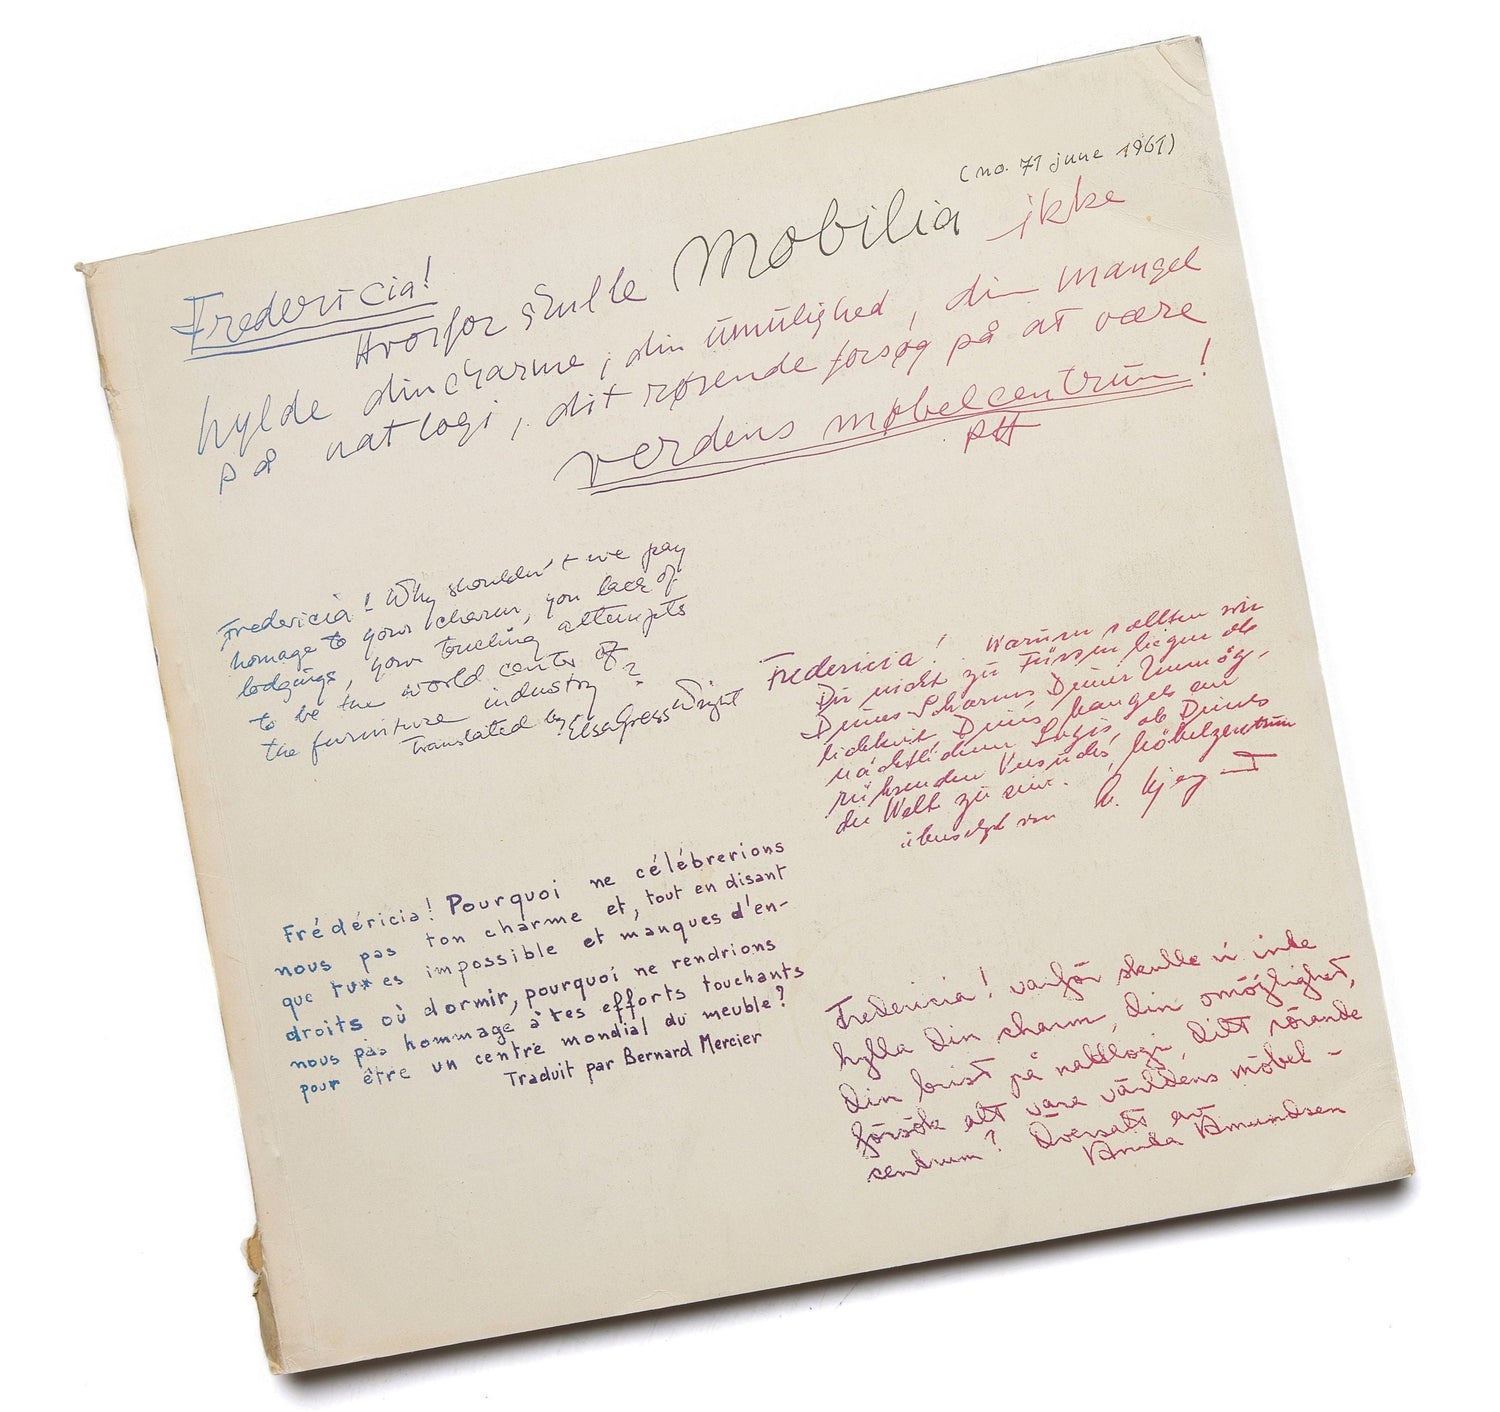 (no. 71 june 1961)
Fredericia!
Hvorfor skulle Mobilia ikke
hylde din charme, din umulighed, din mangel
på natlogi, dit rørende forsøg på at være
verdens møbelcentrum!
PH
Fredericia! Why shouldn't we pay
homage to your charm, you lack of
lodgings, your touching attempts
to be the world center of
the furniture industry?
Translated by: Elsa Gress Wright
Fredericia! Warum sollten wir
Dir nicht zu Füssen liegen ob
Deines Scharms Deiner Unmög-
lichkeit Deines Mangels an
nächtlichem Logis, ob Deines
rührenden Versuchs, Möbelzentrum
der Welt zu sein.
übersetzt von
Frédéricia! Pourquoi ne célébrerions
nous pas ton charme et, tout en disant
que tu es impossible et manques d'en-
droits où dormir, pourquoi ne rendrions
nous pas hommage à tes efforts touchants
pour être un centre mondial du meuble?
Traduit par Bernard Mercier
Fredericia! varför skulle vi inte
hylla Din charm, Din omöjlighet,
Din brist på nattlogi, Ditt rörande
försök att vara världens möbel-
centrum? Översatt av
Amundsen